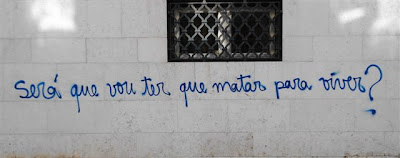 Será que vou ter que matar para viver?